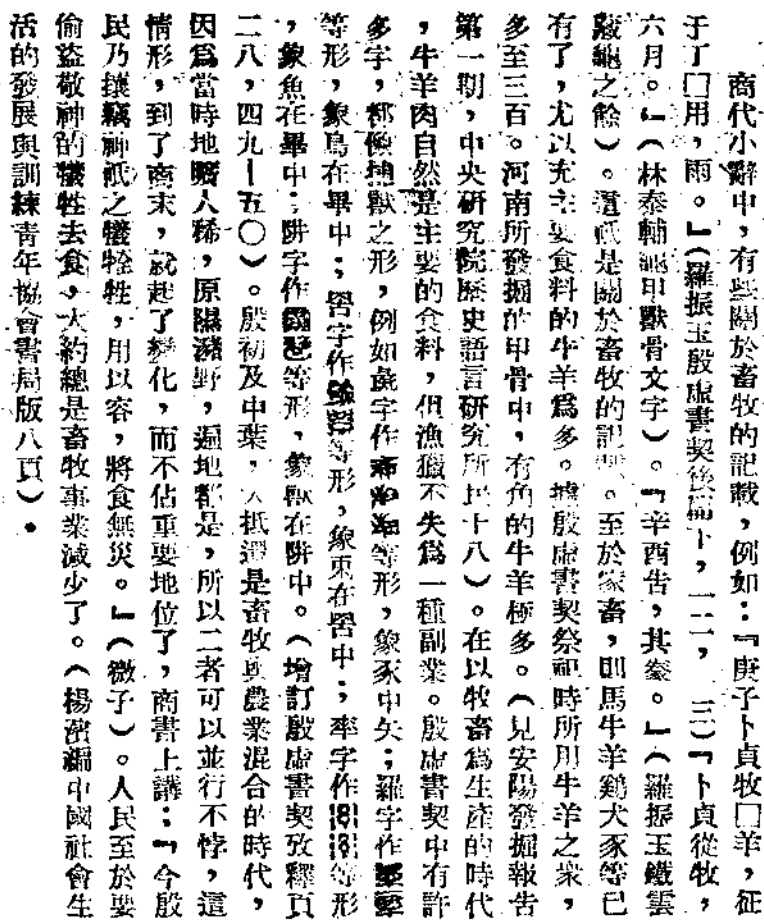 商代小辭中，有些關於畜牧的記載，例如：「庚子卜貞牧□羊，征
于丁□用，雨。」（羅振玉殷虛書契後編下，一二，三）「卜貞從牧，
六月。」（林泰輔龜甲獸骨文字）。「辛酉告，其豢。」（羅振玉鐵雲
藏龜之餘）。這祇是關於畜牧的記載。至於家畜，則馬牛羊鷄犬豕等已
有了，尤以充主要食料的牛羊為多。據殷虛書契祭祀時所用牛羊之衆，
多至三百。河南所發掘的甲骨中，有角的牛羊極多。（見安陽發掘報告
第一期，中央研究院歷史語言研究所民十八）。在以牧畜爲生產的時代
，牛羊肉自然是主要的食料，但漁獵不失爲一種副業。殷虛書契中有許
多字，都像捕獸之形，例如彘字作等形，象豕中矢；羅字作
等形，象鳥在畢中；字作等形，象東在中；率字作等形
，象魚在畢中；阱字作等形，象獸在阱中。（增訂殷虛書契攷釋頁
二八，四九—五〇）。殷初及中葉，大抵還是畜牧與農業混合的時代，
因爲當時地曠人稀，原隰濕野，遍地都是，所以二者可以並行不悖，這
情形，到了商末，就起了變化，而不佔重要地位了，商書上講：「今殷
民乃攘竊神祇之犧牷牲，用以容，將食無災。」（微子）。人民至於要
偷盜敬神的犧牲去食，大約總是畜牧事業減少了。（楊編中國社會生
活的發展與訓練青年協會書局版八頁）。